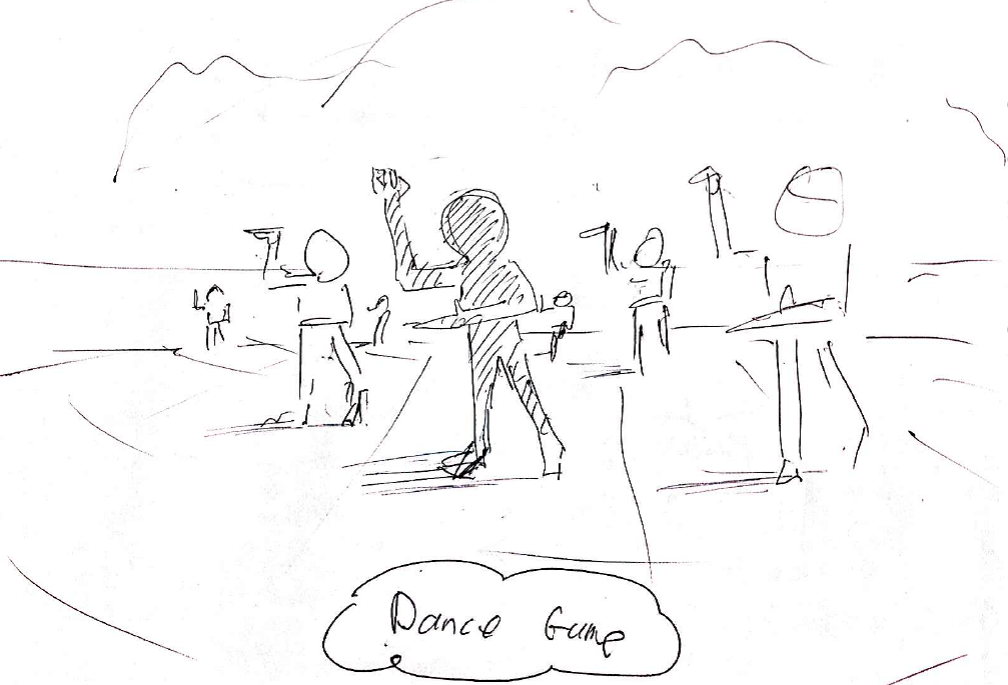 Dance Game